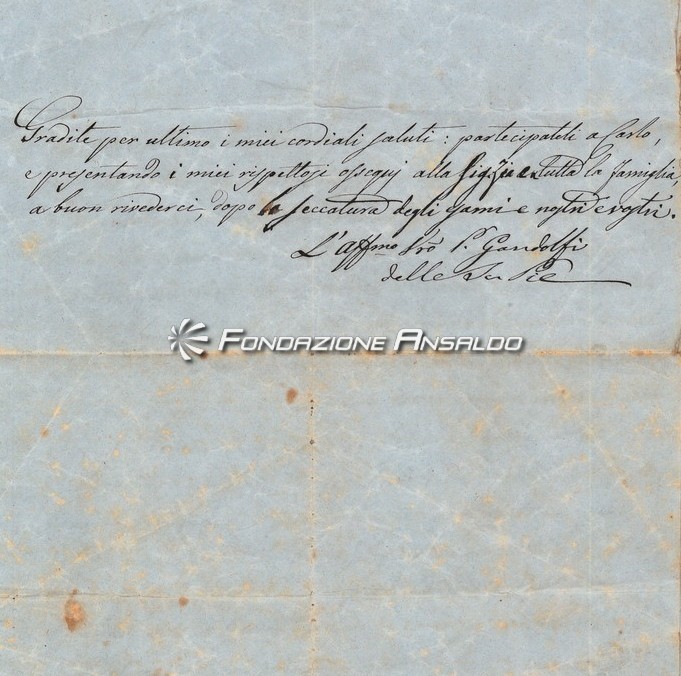 Gradite per ultimo i miei cordiali saluti: partecipateli a Carlo,
e presentando i miei rispettosi ossequj alla Sig. Zia e tutta la famiglia,
a buon rivederci, dopo la seccatura degli esami e nostri e vostri.
L'affmo Vro P. Gandolfi
delle Scu Pie
FONDAZIONE ANSALDO